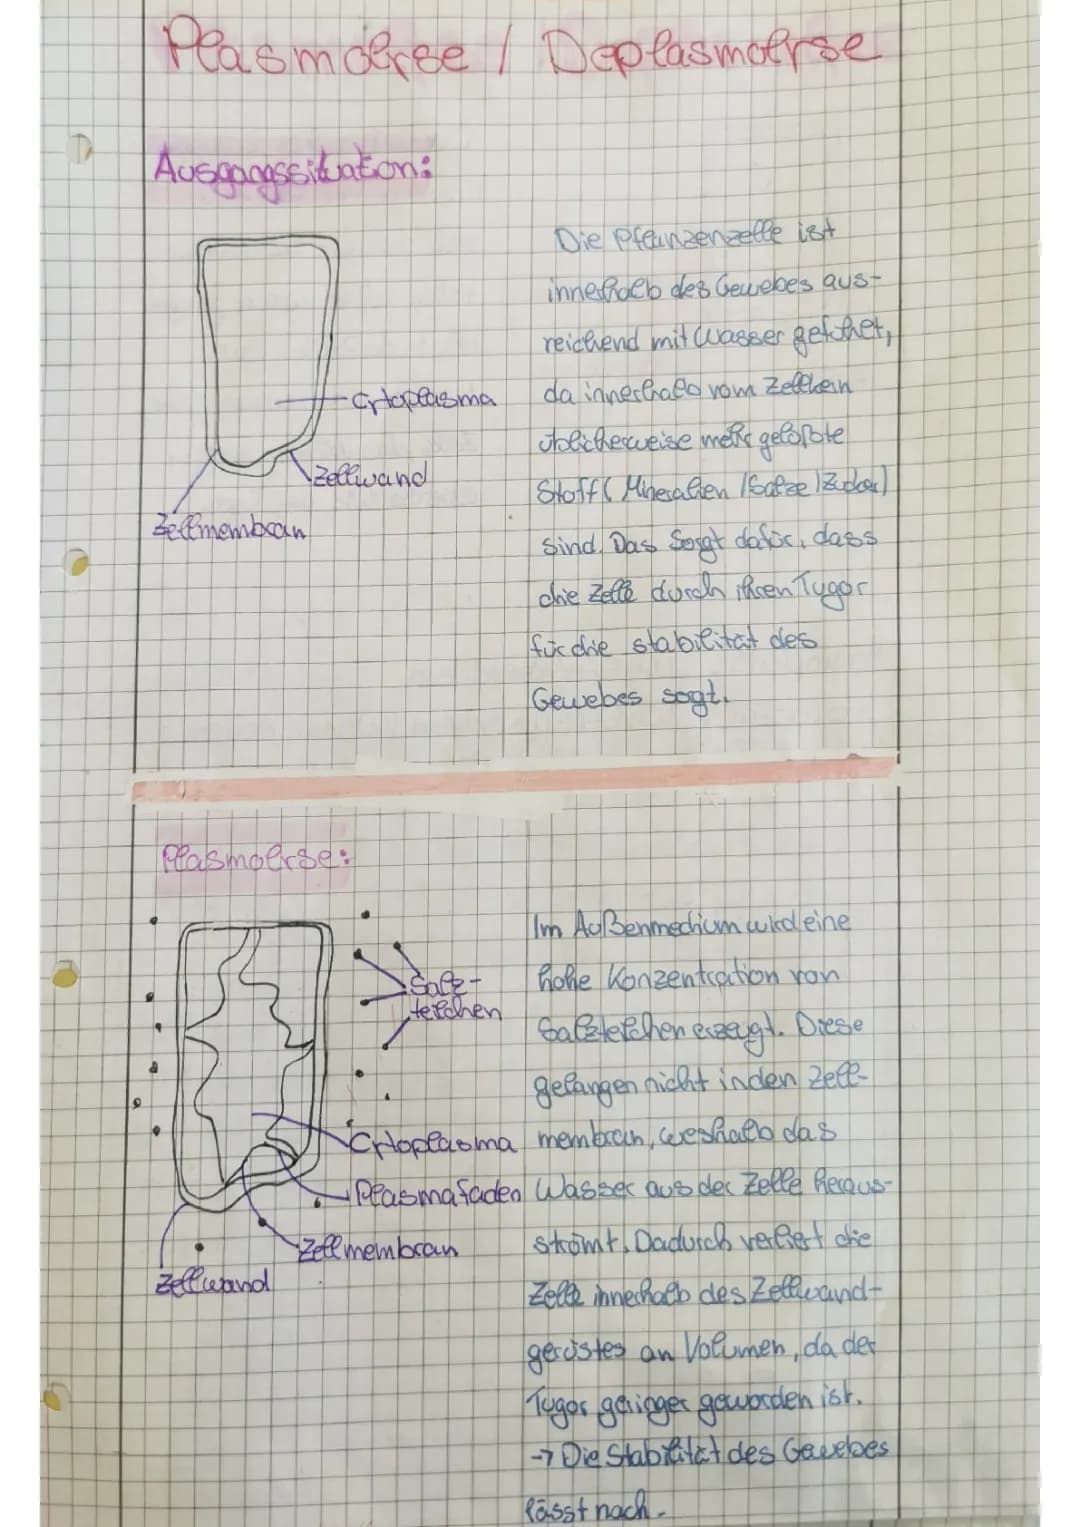 Plasmolyse / Deplasmolyse
Ausgangssituation:
Die Pflanzenzelle ist
innerhalb des Gewebes aus-
reichend mit Wasser gefühet,
da innerhalb vom Zellkern
üblicherweise mehr gelößte
Stoff( Mineralien /Salze /Zucker)
sind. Das Sorgt dafür, dass
die Zelle durch ihren Tugor
für die stabilität des
Gewebes sogt.
Cytoplasma
Zellwand
Zellmembran
Plasmolyse:
Im Außenmedium wird eine
hohe Konzentration von
Salzteilchen erzeugt. Diese
gelangen nicht in den Zell-
membran, weshalb das
Wasser aus der Zelle heraus-
strömt. Dadurch verliert die
Zelle innerhalb des Zellwand-
gerüstes an Volumen, da der
Tugor geringer geworden ist.
→ Die Stabilität des Gewebes
lässt nach.
Salz-
teilchen
Cytoplasma
Plasmafaden
Zellmembran
Zellwand